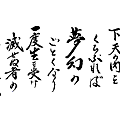 下天の内を
くらぶれば
夢幻の
ごとくなり
一度生を受け
滅せぬ者の